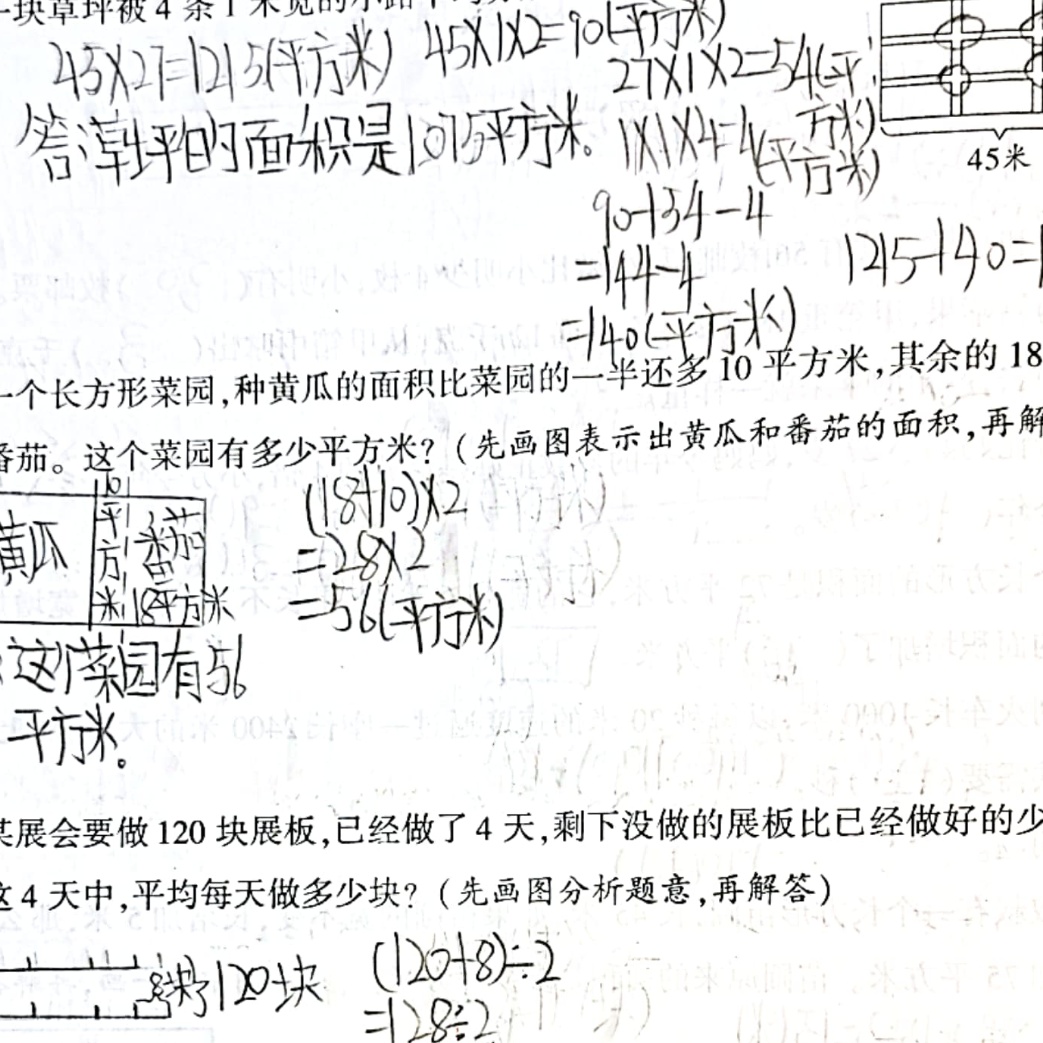 一块草坪被4条1米宽的小路
45×27=1215(平方米) 45×1×2=90(平方米)
27×1×2=54(平方米)
答:草坪的面积是1075平方米。 1×1×4=4(平方米)
45米
90+54-4
=144-4
=140(平方米)
1215-140=1
一个长方形菜园,种黄瓜的面积比菜园的一半还多10平方米,其余的18
番茄。这个菜园有多少平方米?(先画图表示出黄瓜和番茄的面积,再解
黄瓜 10平方米 番茄 18平方米
(18+10)×2
=28×2
=56(平方米)
这个菜园有56
平方米。
某展会要做120块展板,已经做了4天,剩下没做的展板比已经做好的少
这4天中,平均每天做多少块?(先画图分析题意,再解答)
8块 120块
(120+8)÷2
=128÷2